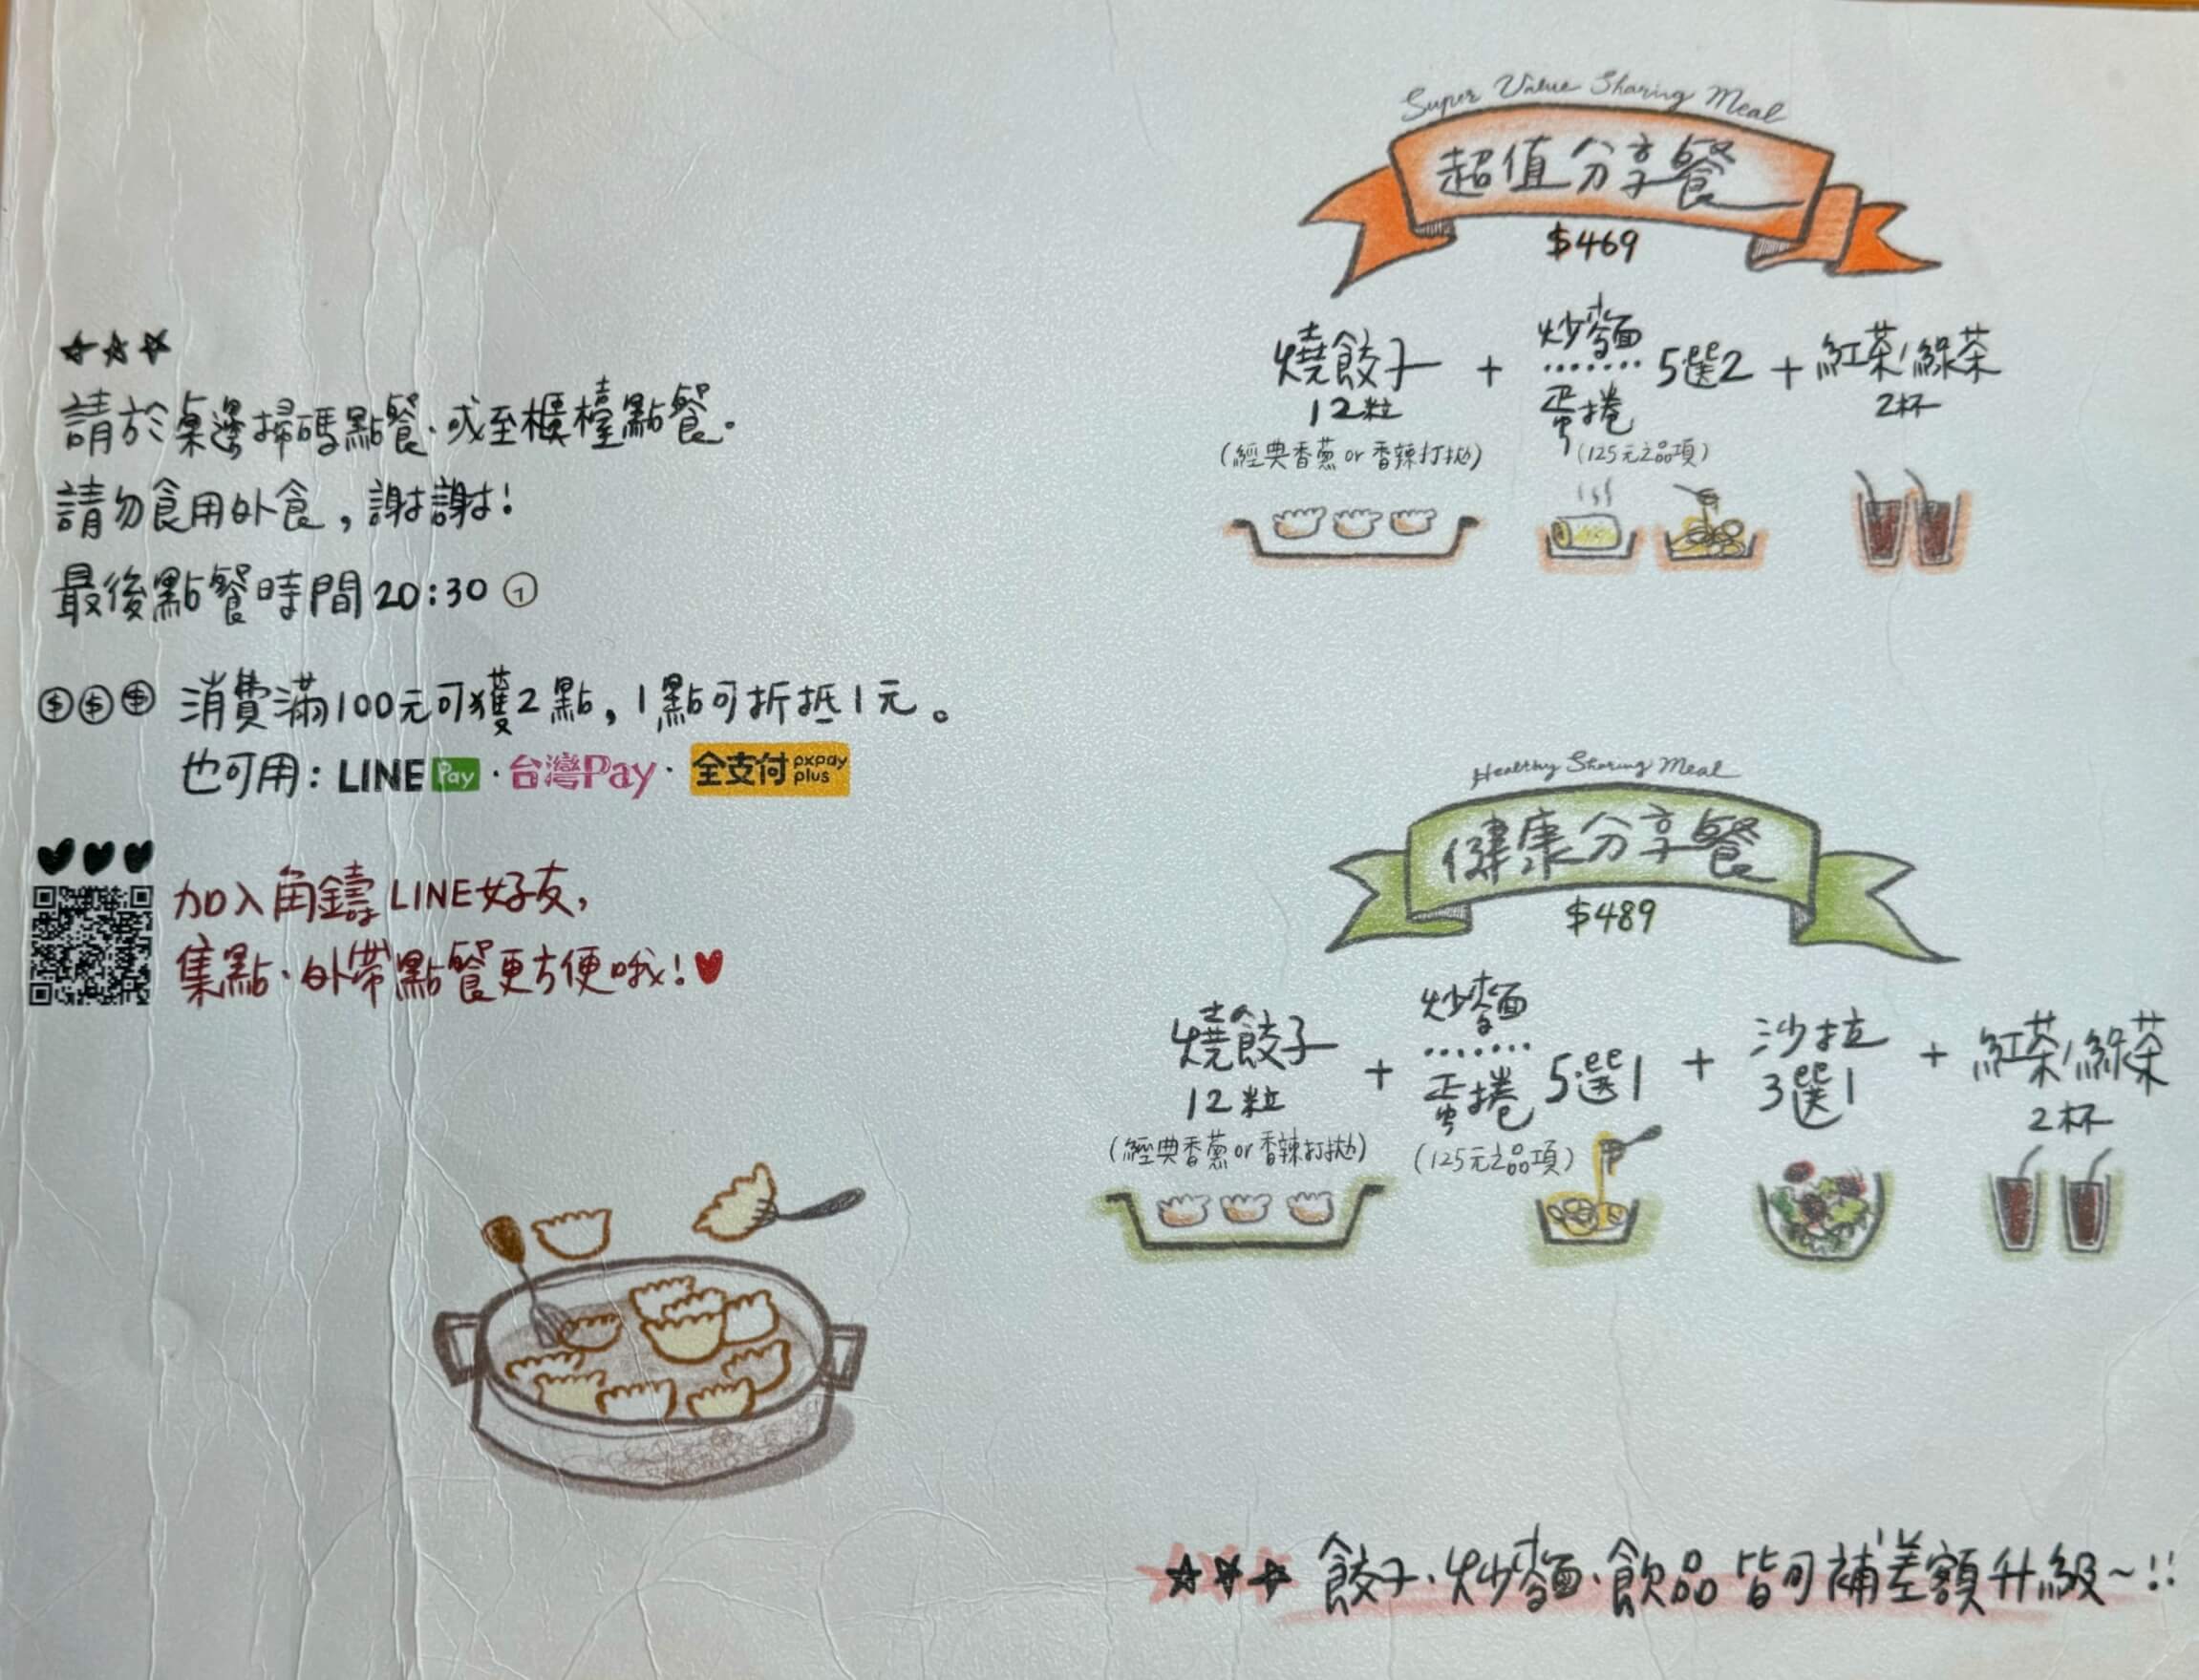 ☆☆☆
請於桌邊掃碼點餐·或至櫃檯點餐。
請勿食用外食,謝謝!
最後點餐時間20:30
消費滿100元可獲2點,1點可折抵1元。
也可用:LINE Pay·台灣Pay·全支付 pxpay plus
加入角鑄LINE好友,
集點·外帶點餐更方便哦!♥
Super Value Sharing Meal
超值分享餐
$469
燒餃子
12粒
(經典香蔥or香辣打拋)
+
炒麵
蛋捲
5選2
(125元之品項)
+
紅茶/綠茶
2杯
Healthy Sharing Meal
健康分享餐
$489
燒餃子
12粒
(經典香蔥or香辣打拋)
+
炒麵
蛋捲
5選1
(125元之品項)
+
沙拉
3選1
+
紅茶/綠茶
2杯
☆☆☆ 餃子·炒麵·飲品 皆可補差額升級~!!